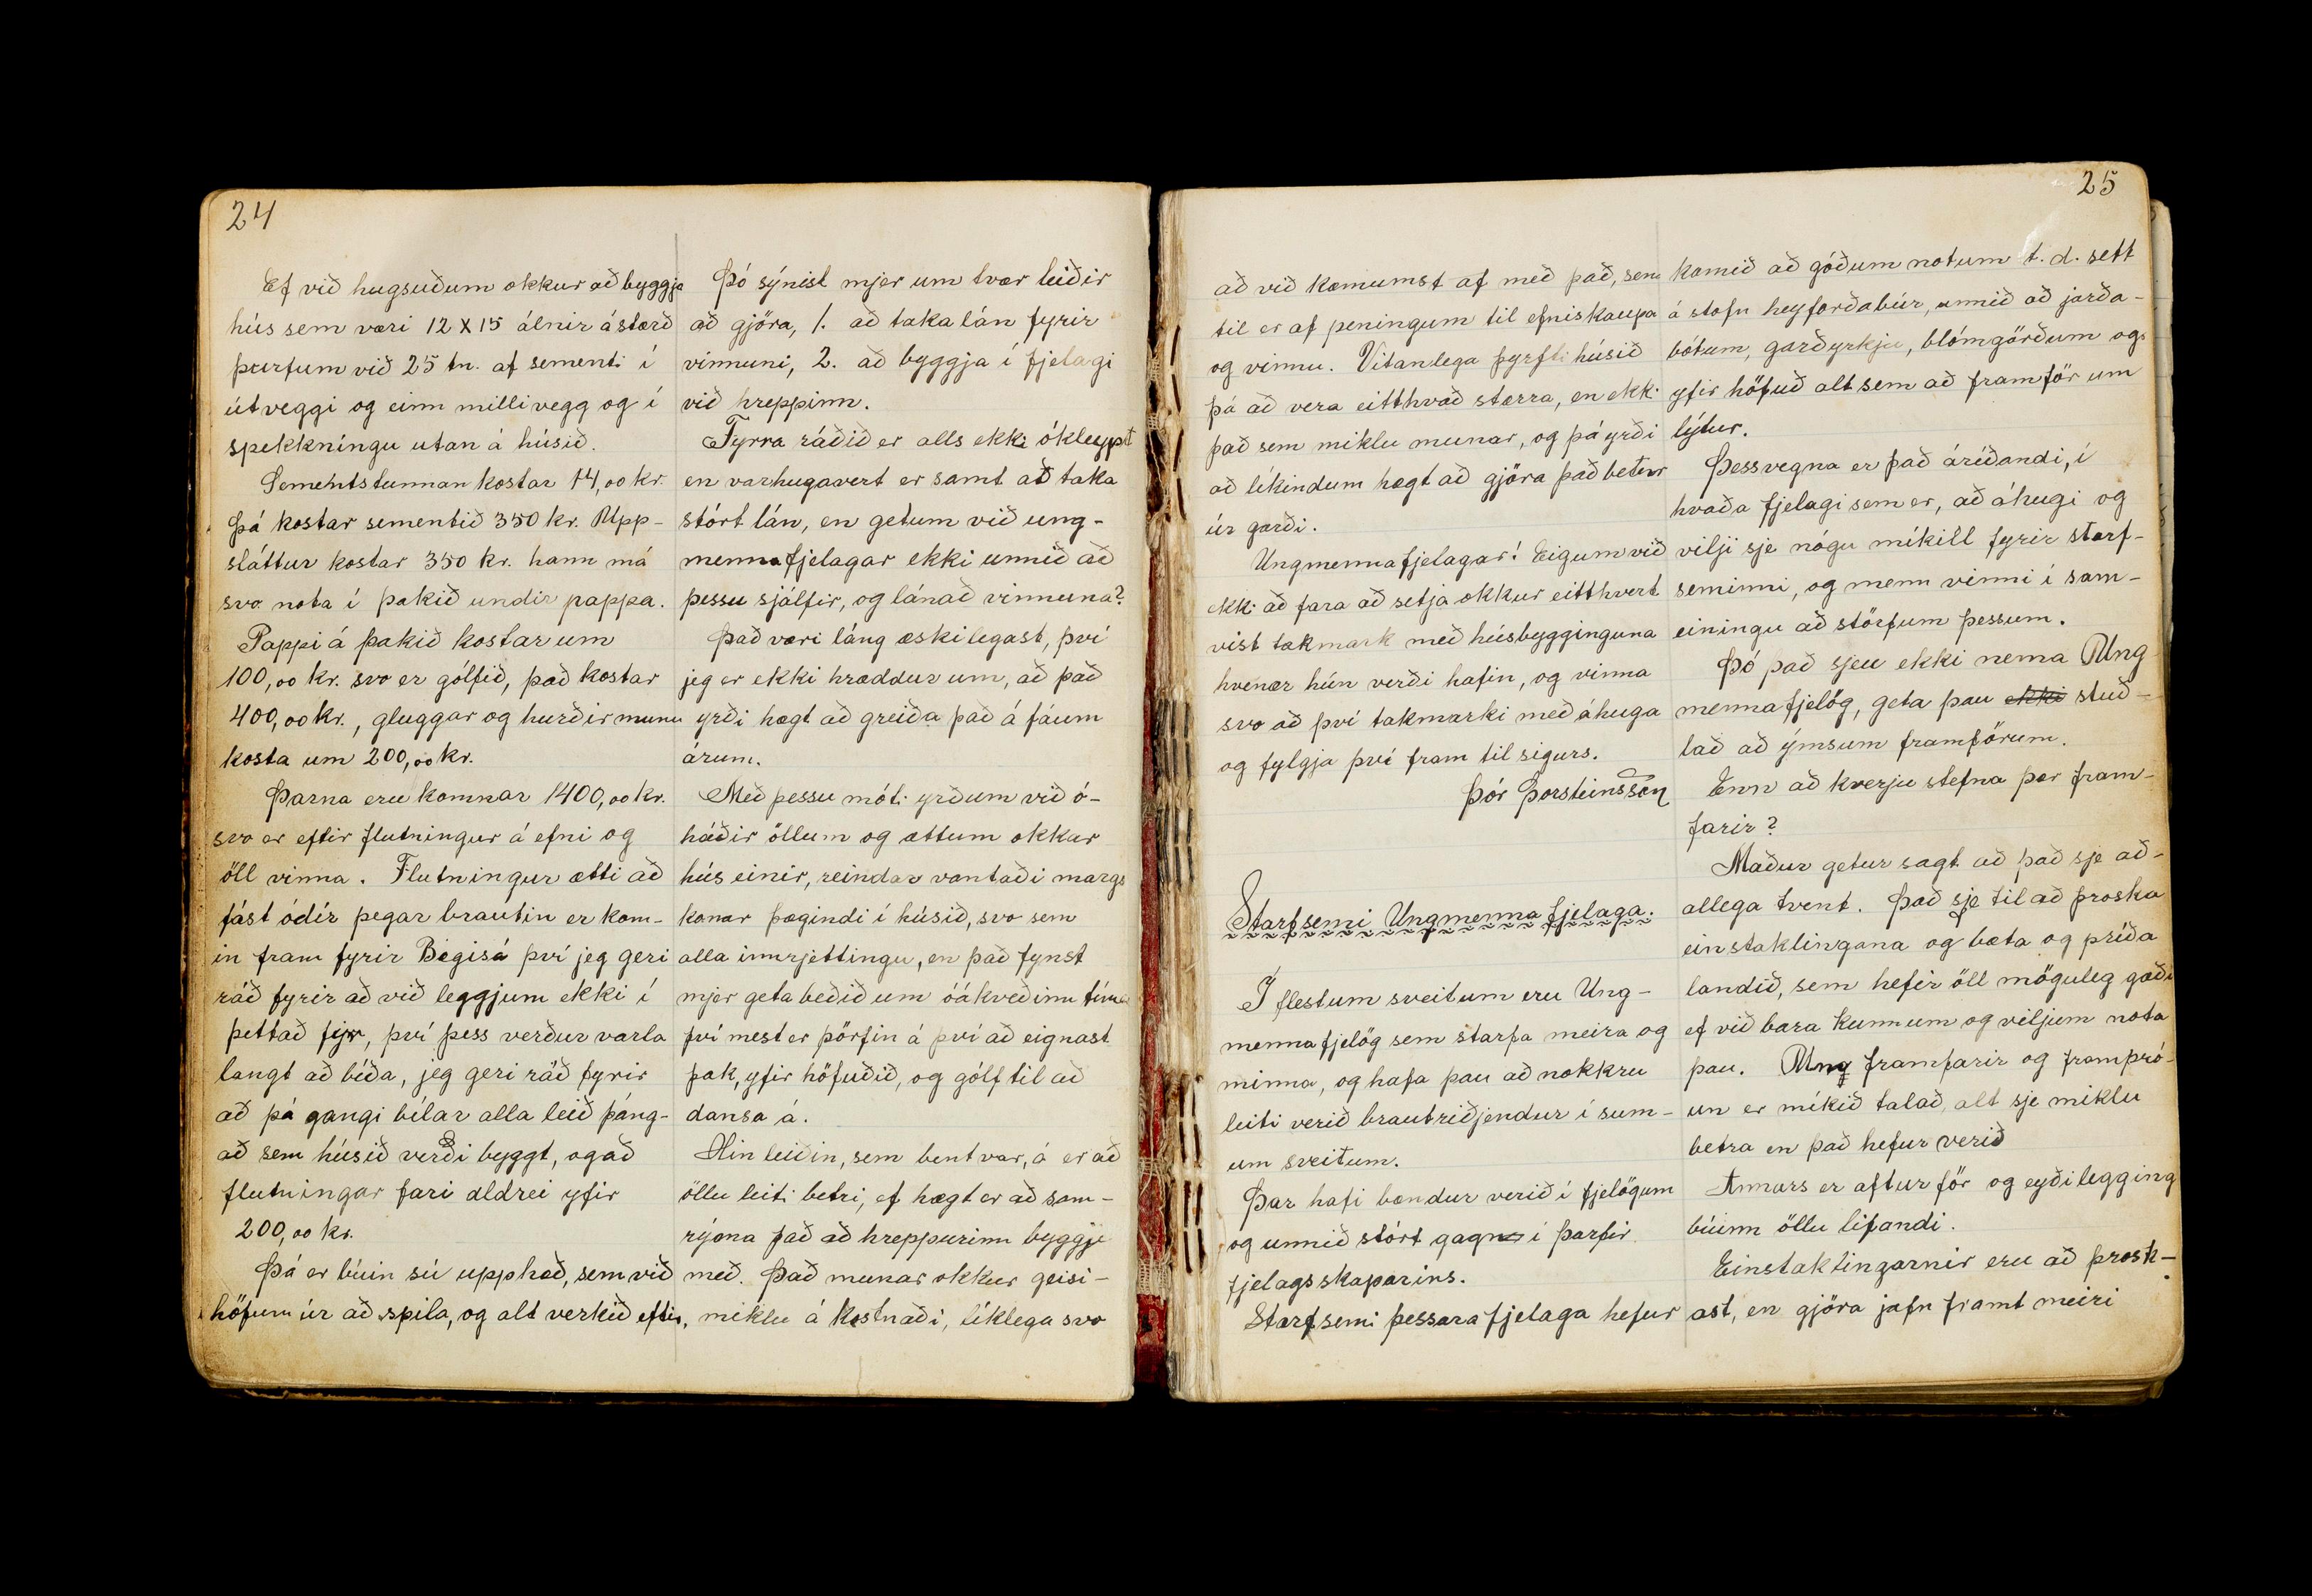 24
Ef við hugsuðum okkur að byggja
hús sem væri 12 x 15 álnir á stærð
þurfum við 25 tn. af sementi í
útveggi og einn millivegg og í
þekkníngu utan á húsið.
Sementstunnan kostar 14,00 kr.
Þá kostar sementið 350 kr. Upp-
sláttur kostar 350 kr. hann má
svo nota í þakið undir pappa.
Pappi á þakið kostar um
100,00 kr. svo er gólfið, það kostar
400,00 kr., gluggar og hurðir munu
kosta um 200,00 kr.
Þarna eru komnar 1400,00 kr.
svo er eftir flutningur á efni og
öll vinna. Flutningur ætti að
fást ódír þegar brautin er kom-
in fram fyrir Bægisá því jeg geri
ráð fyrir að við leggjum ekki í
þettað fyr, því þess verður varla
langt að bíða, jeg geri ráð fyrir
að þá gangi bílar alla leið þáng-
að sem húsið verði byggt, og að
flutningar fari aldrei yfir
200,00 kr.
Þá er búin sú upphæð, sem við
höfum úr að spila, og alt verkið eftir.
Þó sýnist mjer um tvær leiðir
að gjöra, 1. að taka lán fyrir
vinnuni, 2. að byggja í fjelagi
við hreppinn.
Fyrra ráðið er alls ekki ókleypt
en varhugavert er samt að taka
stórt lán, en getum við ung-
mennafjelagar ekki unnið að
þessu sjálfir, og lánað vinnuna?
Það væri láng æskilegast, því
jeg er ekki hræddur um, að það
yrði hægt að greiða það á fáum
árum.
Með þessu móti yrðum við ó-
háðir öllum og ættum okkar
hús einir, reindar vantaði margs
konar þægindi í húsið, svo sem
alla innrjettingu, en það fynst
mjer geta beðið um óákveðinn tíma
því mest er þörfin á því að eignast
þak, yfir höfuðið, og gólf til að
dansa á.
Hin leiðin, sem bent var, á er að
öllu leiti betri, ef hægt er að sam-
rýma það að hreppurinn byggje
með. Það munar okkur geisi-
miklu á kostnaði, líklega svo
25
að við kæmumst af með það, sem
til er af peningum til efniskaupa
og vinnu. Vitanlega þyrfti húsið
þá að vera eitthvað stærra, en ekki
það sem miklu munar, og þá yrði
að líkindum hægt að gjöra það betur
úr garði.
Ungmennafjelagar! Eigum við
ekki að fara að setja okkur eitthvert
vist takmark með húsbygginguna
hvenær hún verði hafin, og vinna
svo að því takmarki með áhuga
og fylgja því fram til sigurs.
Þór Þorsteinsson
Starfsemi Ungmennafjelaga.
Í flestum sveitum eru Ung-
mennafjelög sem starfa meira og
minna, og hafa þau að nokkru
leiti verið brautriðjendur í sum-
um sveitum.
Þar hafi bændur verið í fjelögum
og unnið stórt gagn í þarfir
fjelagsskaparins.
Starfsemi þessara fjelaga hefur
komið að góðum notum t.d. sett
á stofn heyforðabúr, unnið að jarða-
bótum, garðyrkju, blómgörðum og
yfir höfuð alt sem að framför um
lýtur.
Þessvegna er það áríðandi, í
hvaða fjelagi sem er, að áhugi og
vilji sje nógu mikill fyrir starf-
seminni, og menn vinni í sam-
einingu að störfum þessum.
Þó það sjeu ekki nema Ung
mennafjelög, geta þau ekki stuð-
lað að ýmsum framförum.
Enn að kverju stefna þær fram-
farir?
Maður getur sagt að það sje að-
allega tvent. Það sje til að þroska
einstaklingana og bæta og príða
landið, sem hefir öll möguleg gæði
ef við bara kunnum og viljum nota
þau. Um framfarir og framþró-
un er mikið talað, alt sje miklu
betra en það hefur verið
Annars er afturför og eyðilegging
búinn öllu lifandi.
Einstaklingarnir eru að þrosk-
ast, en gjöra jafn framt meiri